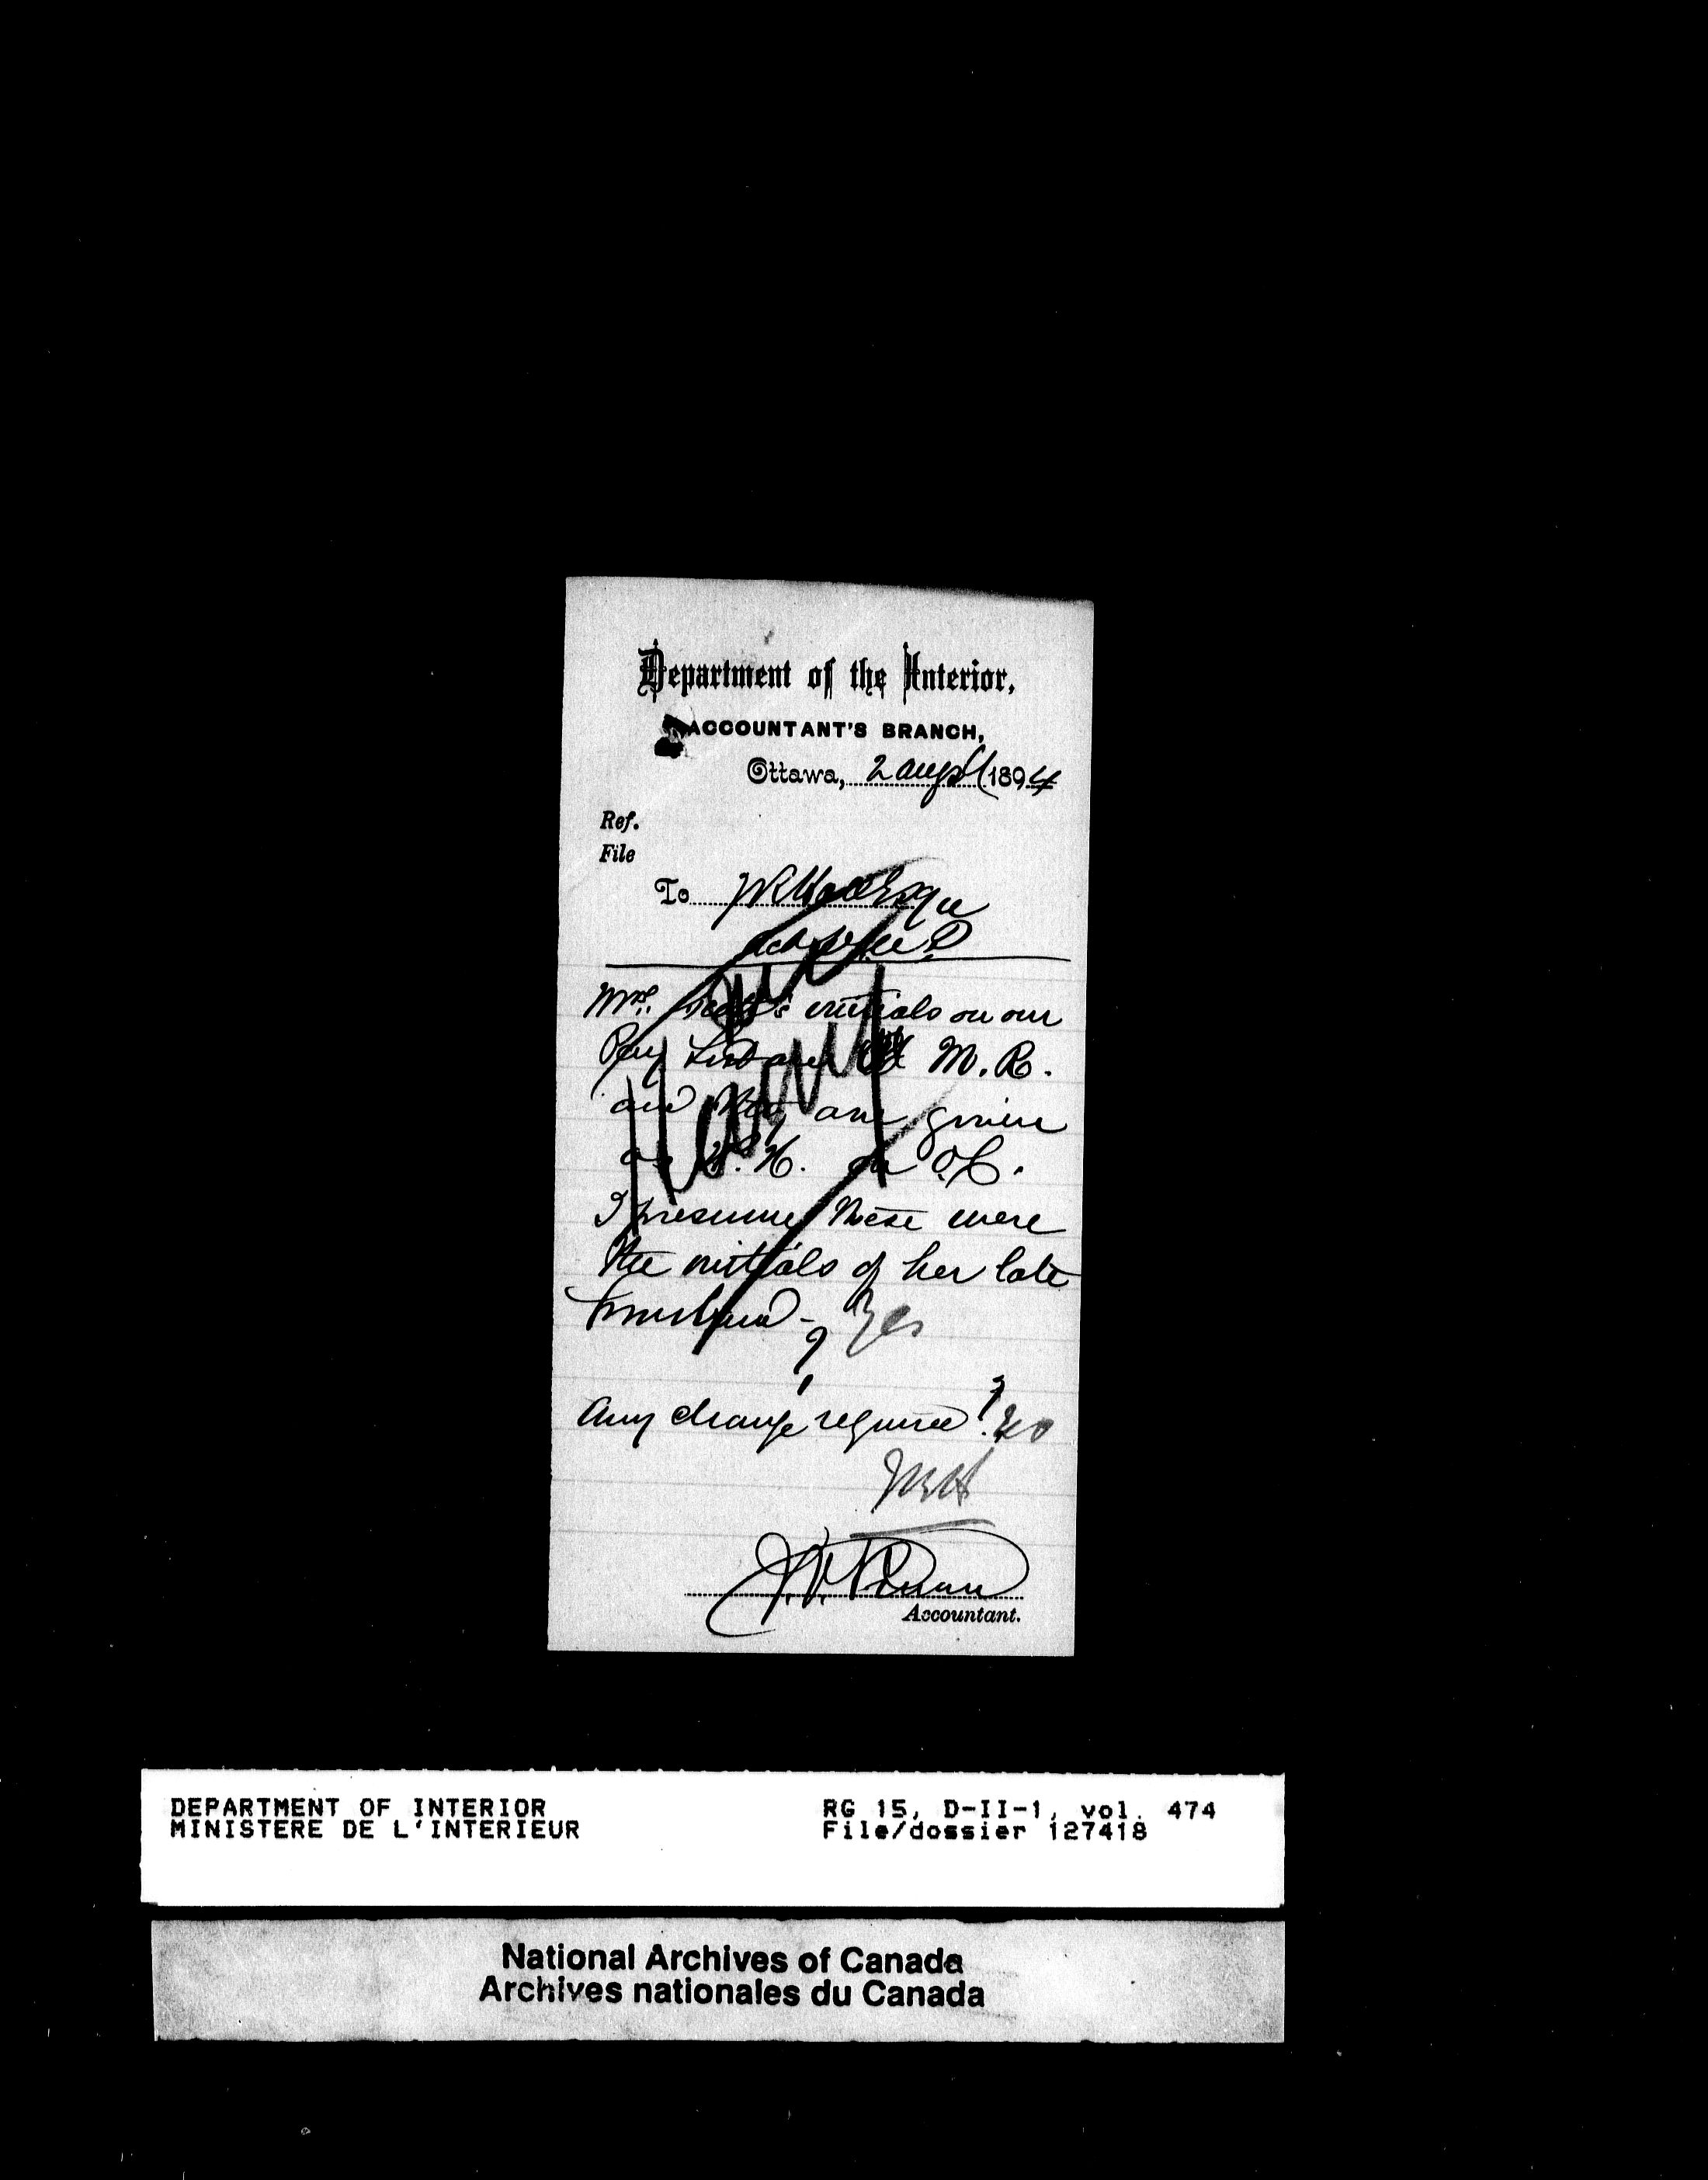 Department of the Interior,
ACCOUNTANT'S BRANCH,
Ottawa, 2 Augst 1894
Ref.
File
To Esqre
Mrs. initials on our
Pay List are M. R.
and they are given
as H. on O.C.
I presume these were
the initials of her late
husband - ? Yes
Any change required? No
JRH
Accountant.
DEPARTMENT OF INTERIOR RG 15, D-II-1, vol. 474
MINISTERE DE L'INTERIEUR File/dossier 127418
National Archives of Canada
Archives nationales du Canada